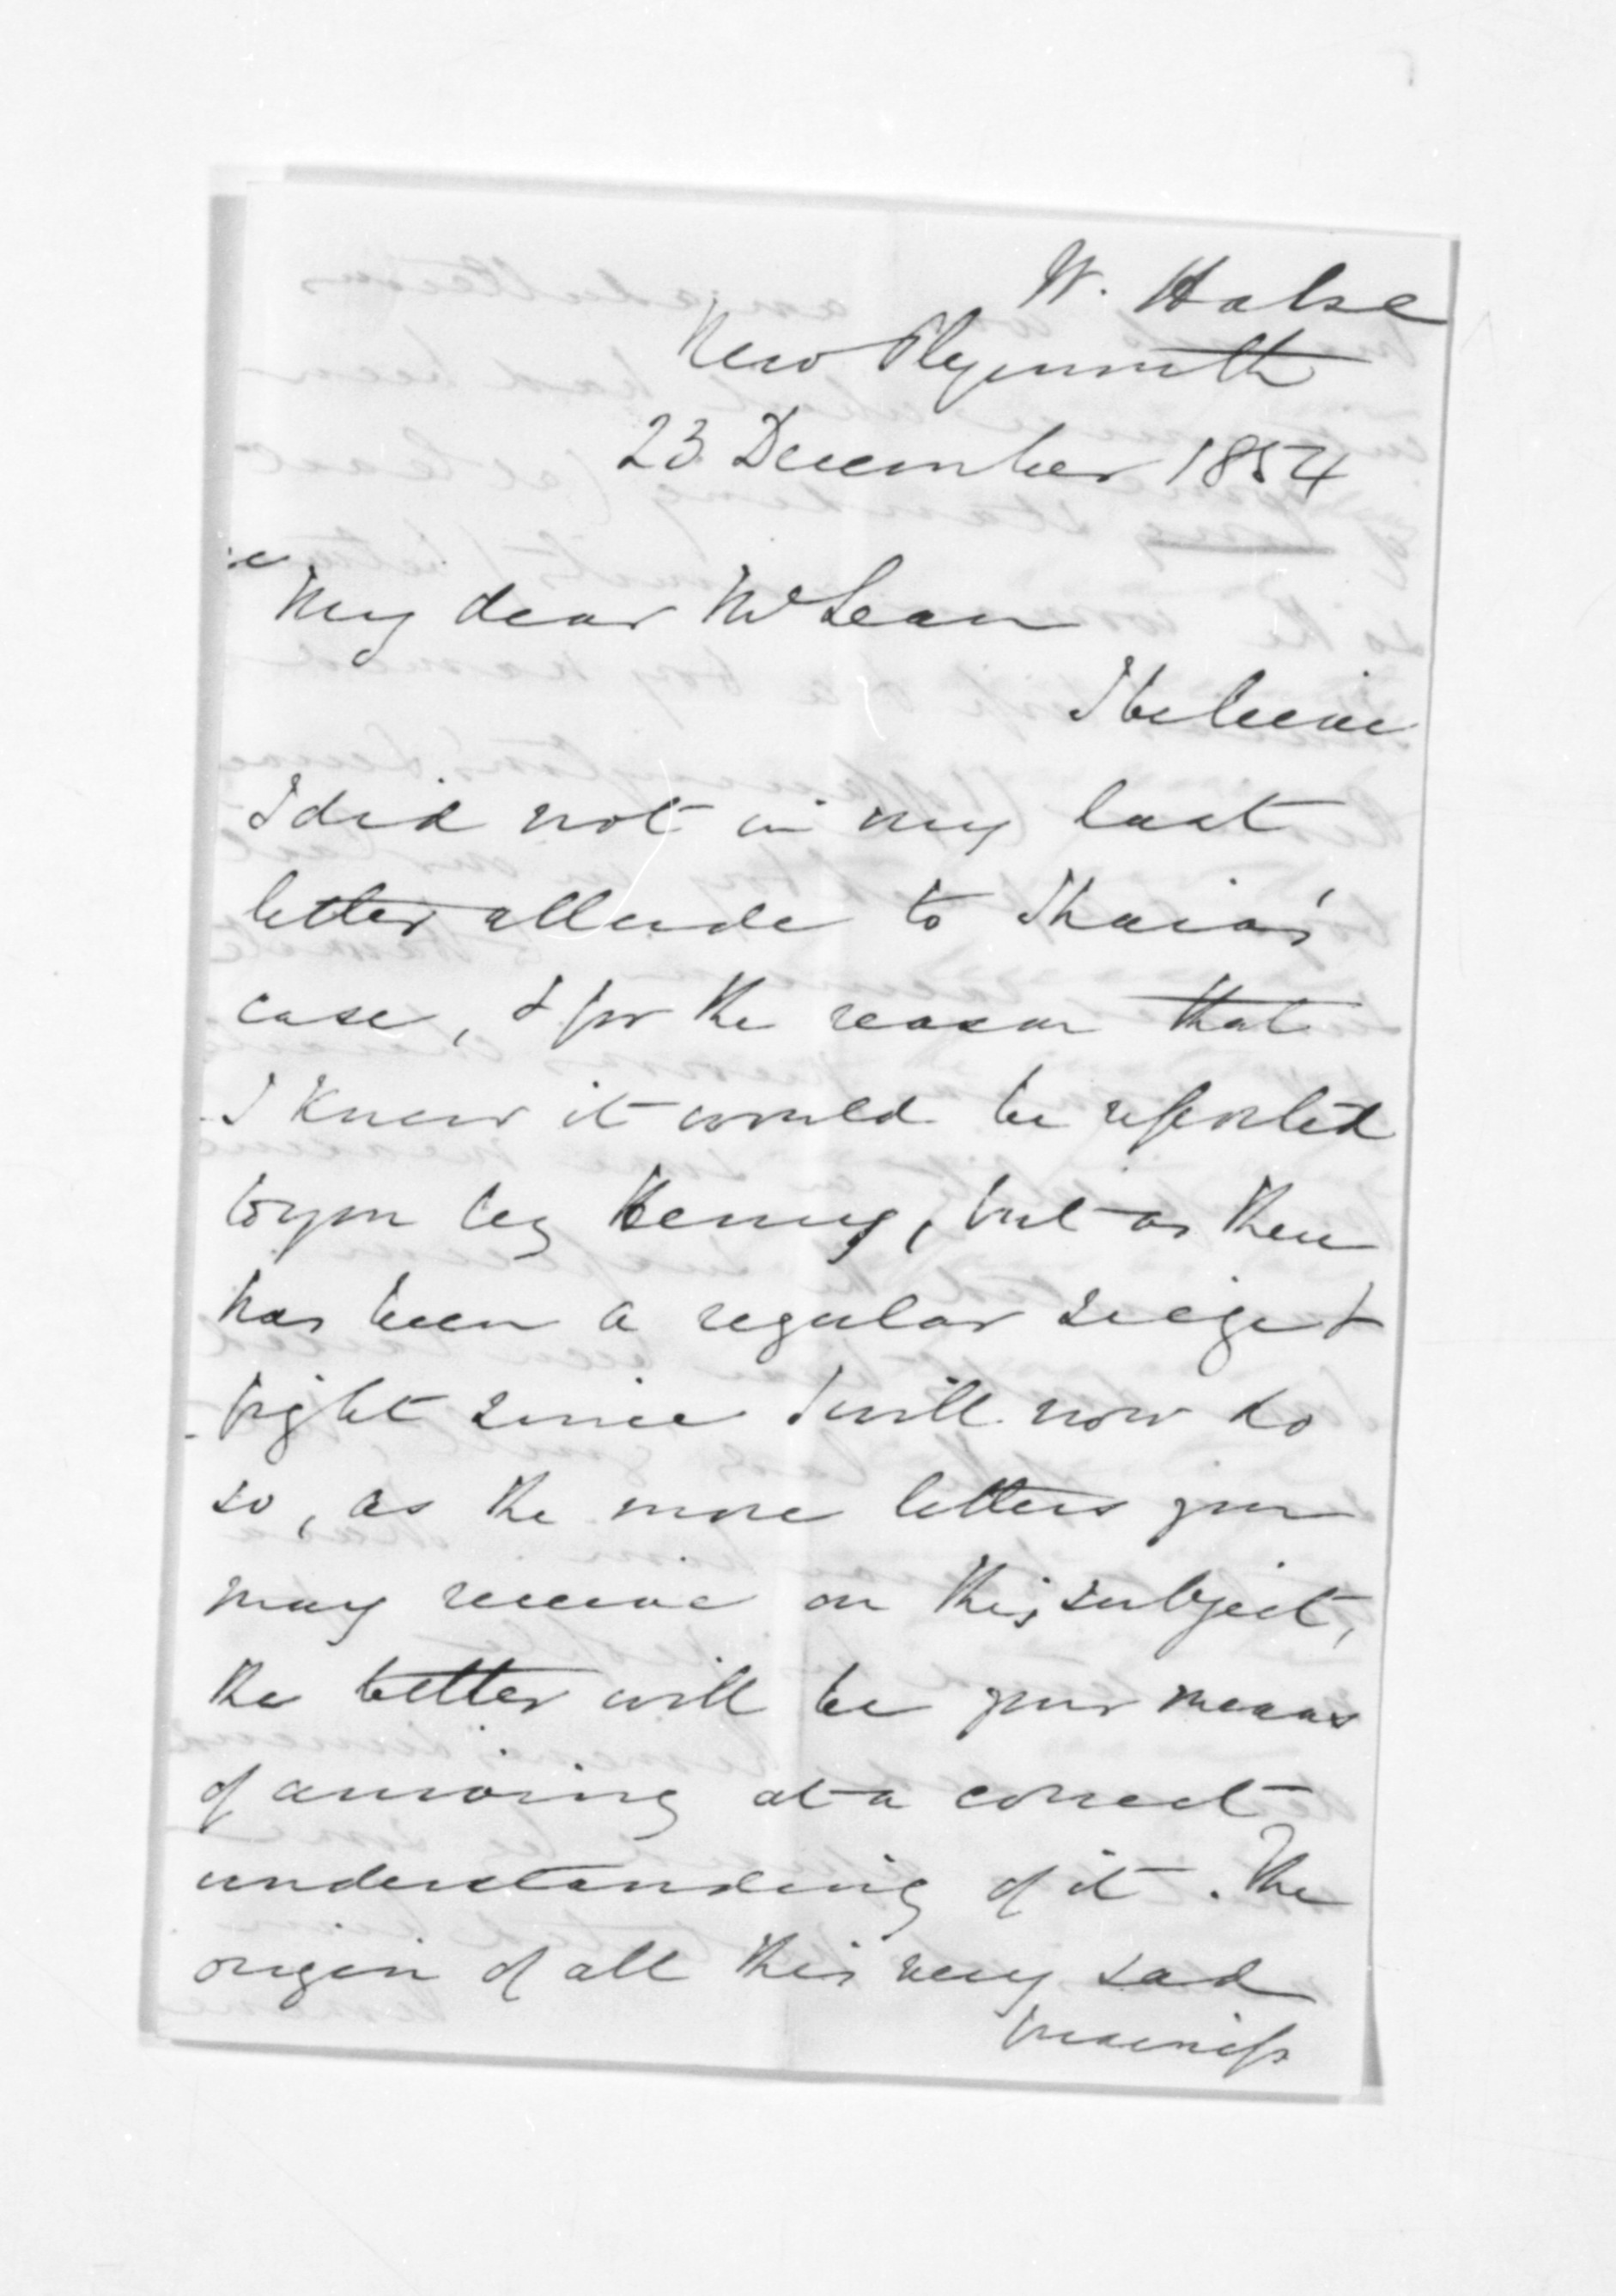 W. Halse
New Plymouth
23 December 1854
My dear McLean
I believe
I did not in my last
letter allude to Ihaia's
case, & for the reason that
I knew it would be reported
to you by Henry, but as there
has been a regular seige &
fight since I will now do
so, as the more letters you
may receive on this subject,
the better will be your means
of arriving at a correct
understanding of it. The
origin of all this very sad
business